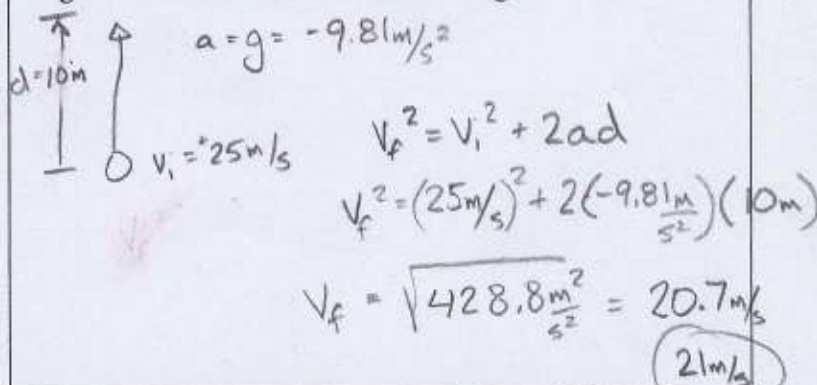 d=10m
a = g = -9.81m/s²
Vᵢ = ⁺25m/s
V_f² = Vᵢ² + 2ad
V_f² = (25m/s)² + 2(-9.81 m/s²)(10m)
V_f = √428.8 m²/s² = 20.7m/s
21m/s